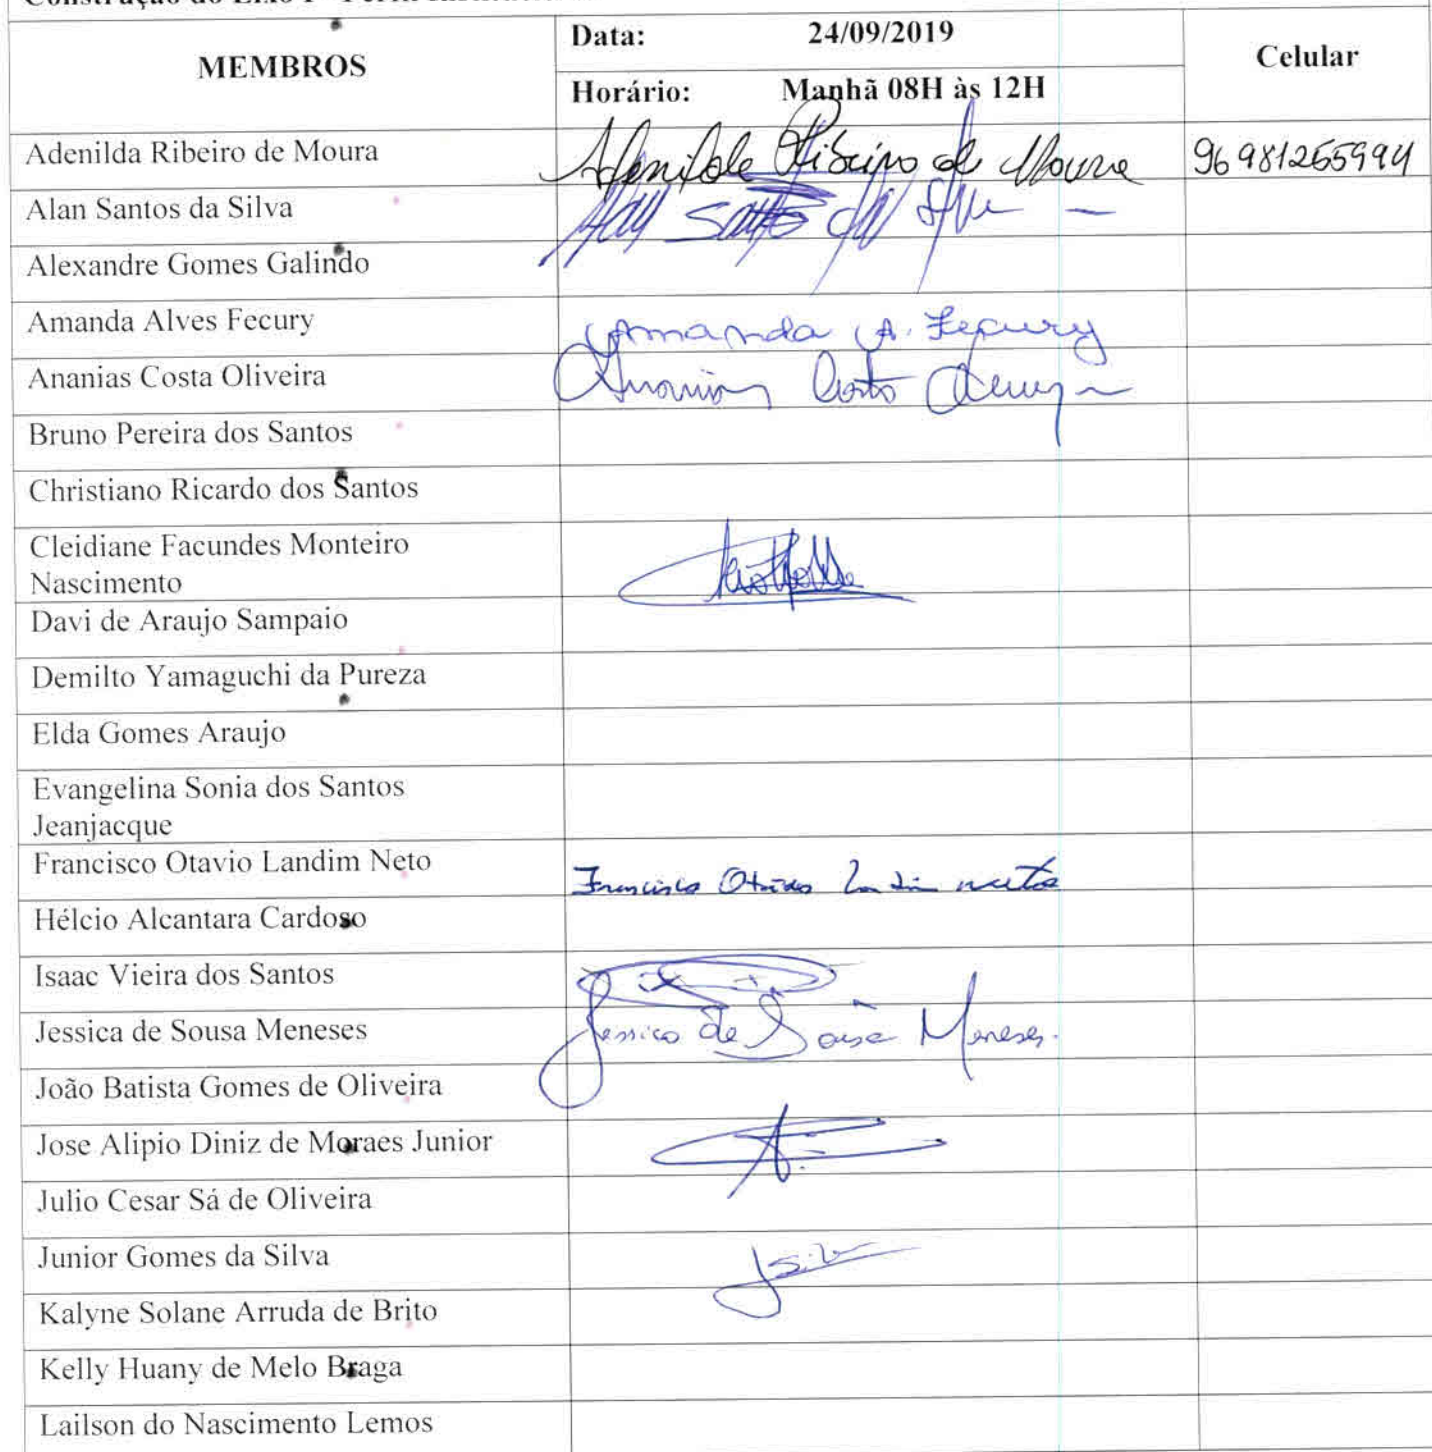 MEMBROS
Data: 24/09/2019
Celular
Horário: Manhã 08H às 12H
Adenilda Ribeiro de Moura Adenilda Ribeiro de Moura 96 981265994
Alan Santos da Silva Alan Santos da Silva
Alexandre Gomes Galindo
Amanda Alves Fecury Amanda A. Fecury
Ananias Costa Oliveira Ananias Costa Oliveira
Bruno Pereira dos Santos
Christiano Ricardo dos Santos
Cleidiane Facundes Monteiro
Nascimento
Davi de Araujo Sampaio
Demilto Yamaguchi da Pureza
Elda Gomes Araujo
Evangelina Sonia dos Santos
Jeanjacque
Francisco Otavio Landim Neto Francisco Otavio Landim Neto
Hélcio Alcantara Cardoso
Isaac Vieira dos Santos
Jessica de Sousa Meneses Jessica de Sousa Meneses.
João Batista Gomes de Oliveira
Jose Alipio Diniz de Moraes Junior
Julio Cesar Sá de Oliveira
Junior Gomes da Silva
Kalyne Solane Arruda de Brito
Kelly Huany de Melo Braga
Lailson do Nascimento Lemos